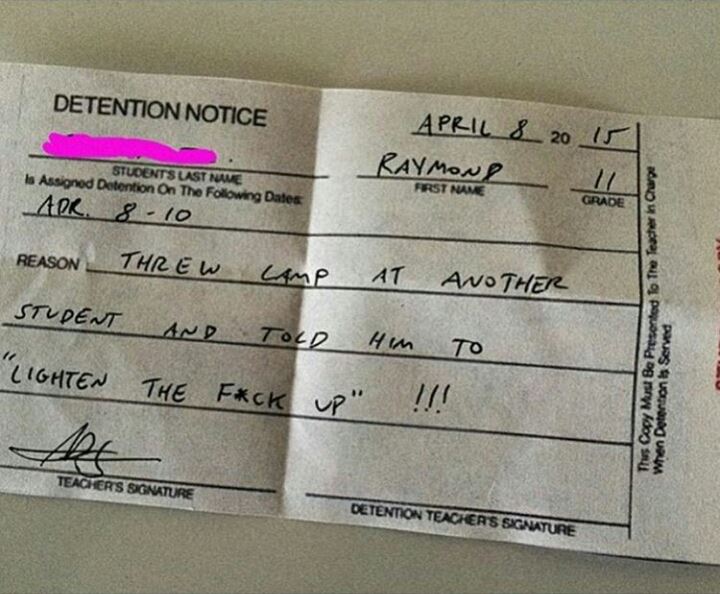 DETENTION NOTICE
APRIL 8 20 15
STUDENT'S LAST NAME
RAYMOND 11
FIRST NAME GRADE
Is Assigned Detention On The Following Dates:
APR. 8-10
REASON THREW LAMP AT ANOTHER
STUDENT AND TOLD HIM TO
"LIGHTEN THE F*CK UP" !!!
TEACHER'S SIGNATURE
DETENTION TEACHER'S SIGNATURE
This Copy Must Be Presented To The Teacher In Charge
When Detention Is Served